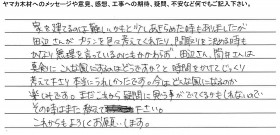 ヤマカ木材へのメッセージや意見、感想、工事への期待、疑問、不安など何でもご記入下さい。
家を建てるのは難しいかもと少しあきらめた時もありましたが
田辺さんが プランを色々考えてくれたり、間取りを決める時も
かなり無理を言っているにもかかわらず、田辺さん、筒井さんは
真剣に こんな風にすればどうですか？と時間をかけてじっくり
考えて下さり 本当にうれしかったです。今はどんな風になるのか
楽しみです。まだまだ 疑問に思う事がでてくるかもしれないので
その時はまた 教えて下さい。
これからもよろしくお願いします。